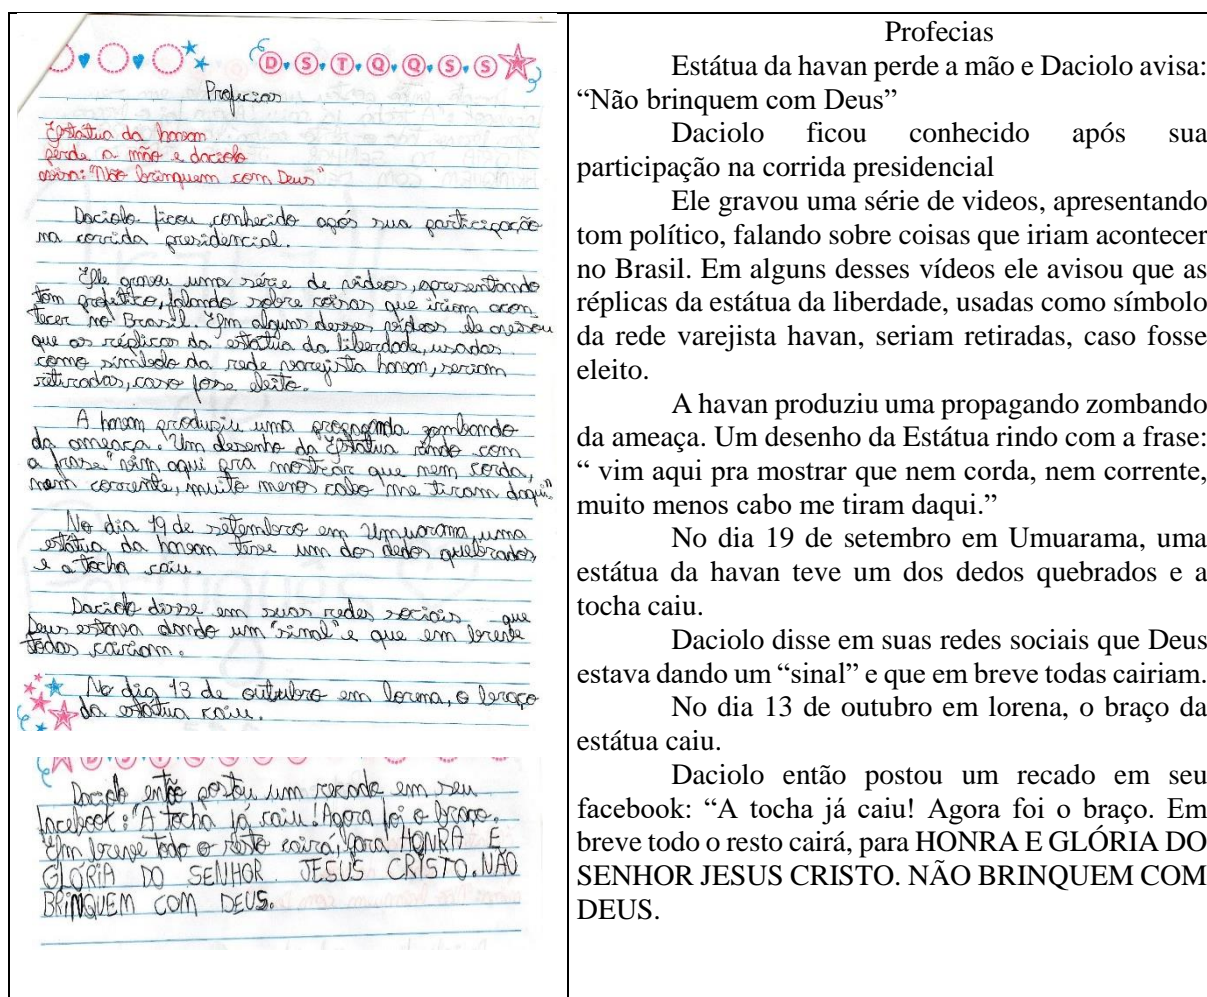 D S T Q Q S S
Profecias
Estátua da havan
perde a mão e daciolo
avisa: "Não brinquem com Deus"
Daciolo ficou conhecido após sua participação
na corrida presidencial.
Ele gravou uma série de videos, apresentando
tom profético, falando sobre coisas que iriam acon
tecer no Brasil. Em alguns desses videos ele avisou
que as réplicas da estatua da liberdade, usadas
como simbolo da rede varejista havan, seriam
retiradas, caso fosse eleito.
A havan produziu uma propaganda zombando
da ameaça. Um desenho da Estatua rindo com
a frase "vim aqui pra mostrar que nem corda,
nem corrente, muito menos cabo me tiram daqui"
No dia 19 de setembro em Umuarama, uma
estátua da havan teve um dos dedos quebrados,
e a tocha caiu.
Daciolo disse em suas redes sociais que
Deus estava dando um "sinal" e que em breve
todas cairiam.
No dia 13 de outubro em lorena, o braço
da estátua caiu.
Daciolo então postou um recado em seu
facebook: "A tocha já caiu! Agora foi o braço.
Em breve todo o resto cairá, para HONRA E
GLÓRIA DO SENHOR JESUS CRISTO. NÃO
BRINQUEM COM DEUS.
Profecias
Estátua da havan perde a mão e Daciolo avisa:
“Não brinquem com Deus”
Daciolo ficou conhecido após sua
participação na corrida presidencial
Ele gravou uma série de videos, apresentando
tom político, falando sobre coisas que iriam acontecer
no Brasil. Em alguns desses vídeos ele avisou que as
réplicas da estátua da liberdade, usadas como símbolo
da rede varejista havan, seriam retiradas, caso fosse
eleito.
A havan produziu uma propagando zombando
da ameaça. Um desenho da Estátua rindo com a frase:
“ vim aqui pra mostrar que nem corda, nem corrente,
muito menos cabo me tiram daqui.”
No dia 19 de setembro em Umuarama, uma
estátua da havan teve um dos dedos quebrados e a
tocha caiu.
Daciolo disse em suas redes sociais que Deus
estava dando um “sinal” e que em breve todas cairiam.
No dia 13 de outubro em lorena, o braço da
estátua caiu.
Daciolo então postou um recado em seu
facebook: “A tocha já caiu! Agora foi o braço. Em
breve todo o resto cairá, para HONRA E GLÓRIA DO
SENHOR JESUS CRISTO. NÃO BRINQUEM COM
DEUS.